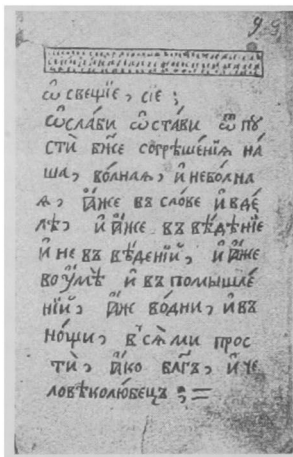 9 9
ѿ свещїе, сїе ;
Ѡ҆сла́би ѡ҆ста́ви ѿпꙋ
сти бж҃е согрѣше́нїѧ на́
ша, во́лнаѧ, и҆ нево́лна
ѧ, ꙗ҆́же въ сло́ве и҆ в дѣ́
лѣ, и҆ ꙗ҆́же въ вѣ́дѣнїе
и҆ не въ вѣ́денїй, и҆ ꙗ҆́же
во ᲂу҆мѣ̀ и҆ въ помышле́
нїй, ꙗ҆́ж во́дни, и҆ въ
но́щи, всѧ́ ми прос
тѝ, ꙗ҆́ко бл҃гъ, и҆ че
ловѣколю́бецъ ;=